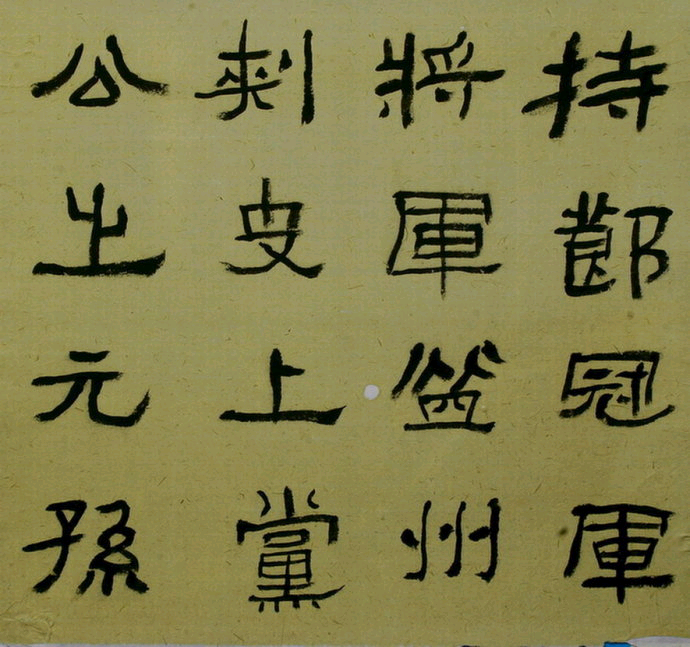 持節冠軍
將軍益州
刺史上黨
公之元孫